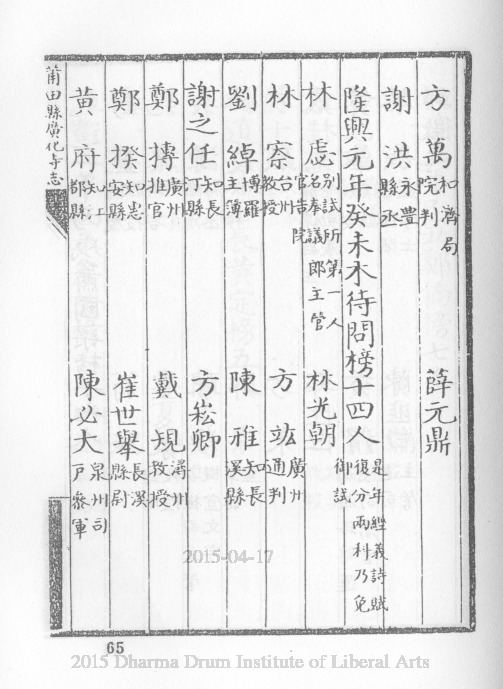 方萬和濟局院判
薛元鼎
謝洪永豐縣丞
隆興元年癸未木待問榜十四人是年經義詩賦復分兩科乃免御試
林虙別試所第一人名奉議郎主管官告院
林光朝
林寀台州教授
方竑廣州通判
劉綽博羅主簿
陳雅知長溪縣
謝之任知長汀縣
方崧卿
鄭摶廣州推官
戴規潯州教授
鄭揆知惠安縣
崔世舉長溪縣尉
黃府知都縣
陳必大泉州司戶參軍
莆田縣廣化寺志
65
2015-04-17
2015 Dharma Drum Institute of Liberal Arts